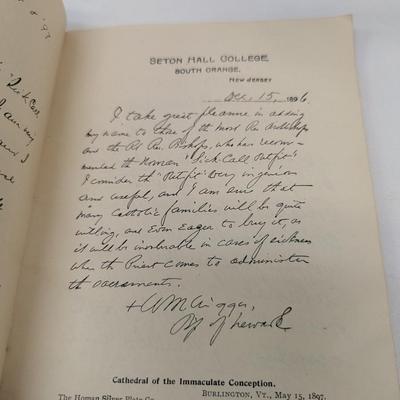 SETON HALL COLLEGE,
SOUTH ORANGE,
NEW JERSEY
Dec. 15, 1896.
I take great pleasure in adding
my name to those of the Most Rev. Archbishops
and the Rt Rev. Bishops, who have recom-
mended the Homan "Sick-Call Outfit".
I consider the "Outfit" very ingenious
and useful, and I am sure that
many Catholic families will be quite
willing, and even eager to buy it, as
it will be invaluable in cases of sickness
when the Priest comes to administer
the sacraments.
+ W M Wigger,
Bp of Newark
Cathedral of the Immaculate Conception.
The Homan Silver Plate Co. BURLINGTON, VT., May 15, 1897.
Sick Call
I am